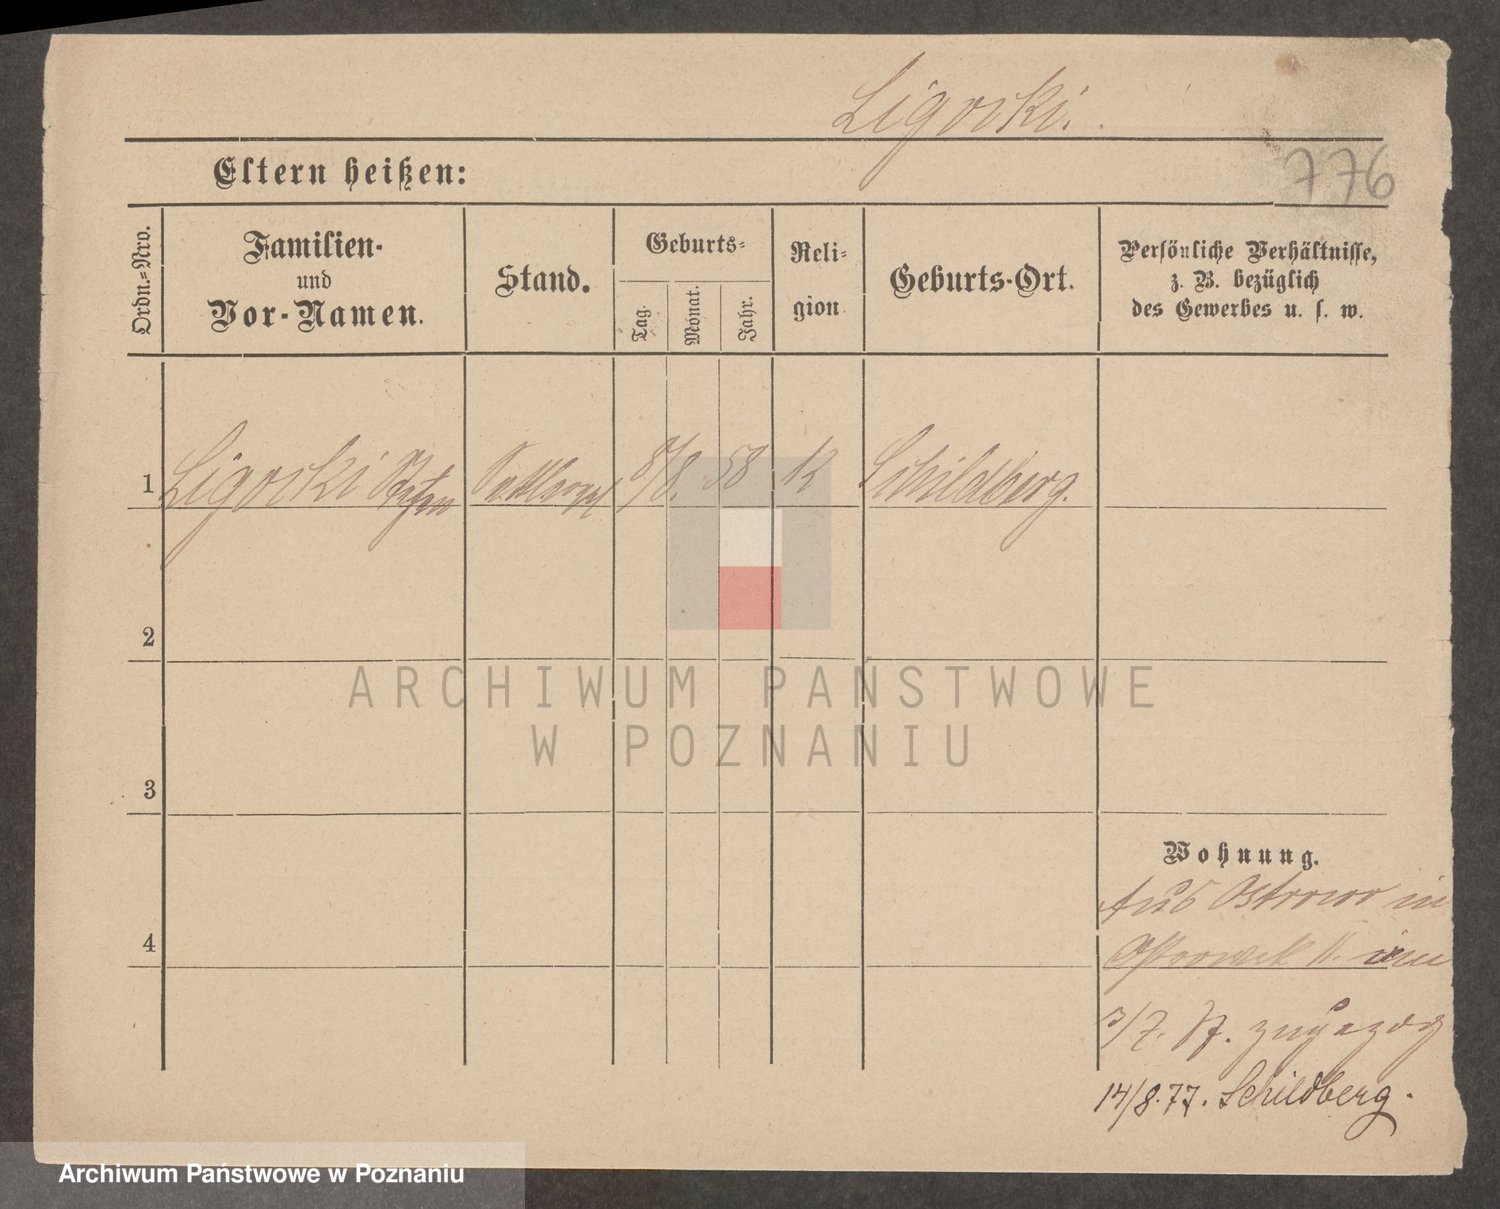 Ligorki.
776
Eltern heißen:
Ordn.=Nro.
Familien-
und
Vor-Namen.
Stand.
Geburts=
Tag.
Monat.
Jahr.
Reli=
gion
Geburts-Ort.
Persönliche Verhältnisse,
z. B. bezüglich
des Gewerbes u. s. w.
1 Ligorki 8/8. 58 K Schildberg.
2
3
4
Wohnung.
Aus Ostrowo in
II. am
3/7. 77. zugezog
14/8.77. Schildberg.
ARCHIWUM PAŃSTWOWE
W POZNANIU
Archiwum Państwowe w Poznaniu